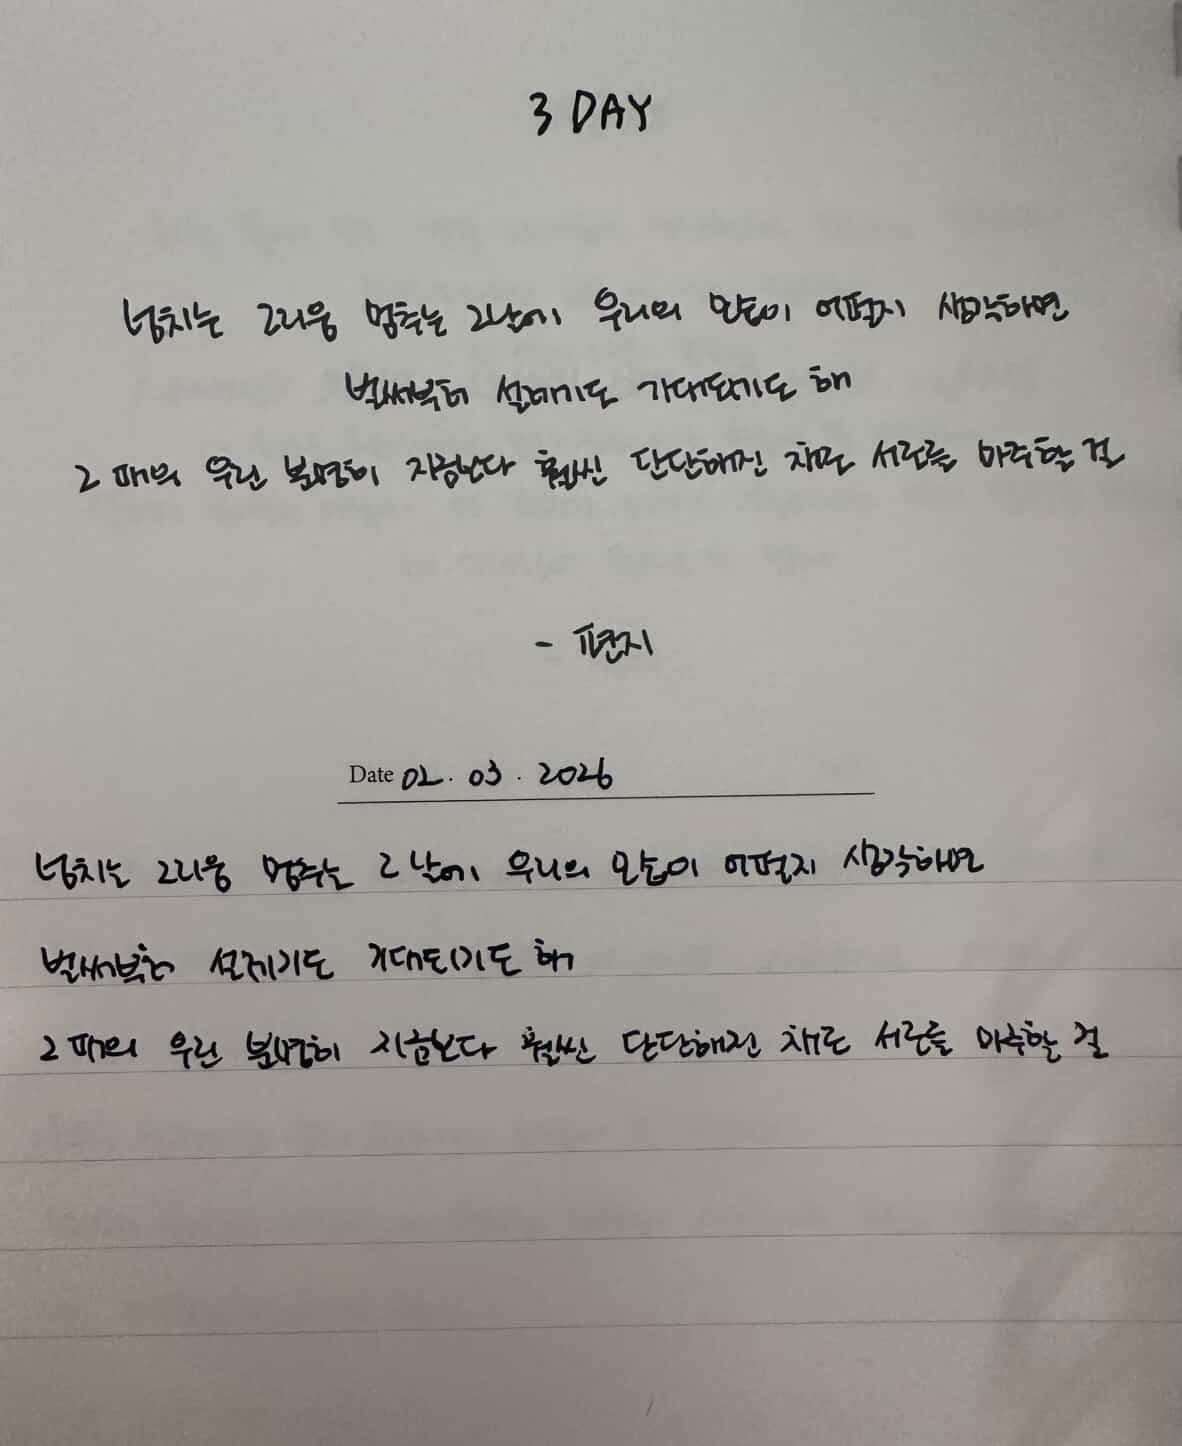 3 DAY
넘치는 그리움 멈추는 그날에 우리의 모습이 어떨지 생각하면
벌써부터 설레기도 기대되기도 해
그 때의 우린 분명히 지금보다 훨씬 단단해진 채로 서로를 마주할 걸
- 편지
Date 02 · 03 · 2026
넘치는 그리움 멈추는 그 날에 우리의 모습이 어떨지 생각하면
벌써부터 설레기도 기대되기도 해
그 때의 우린 분명히 지금보다 훨씬 단단해진 채로 서로를 마주할 걸